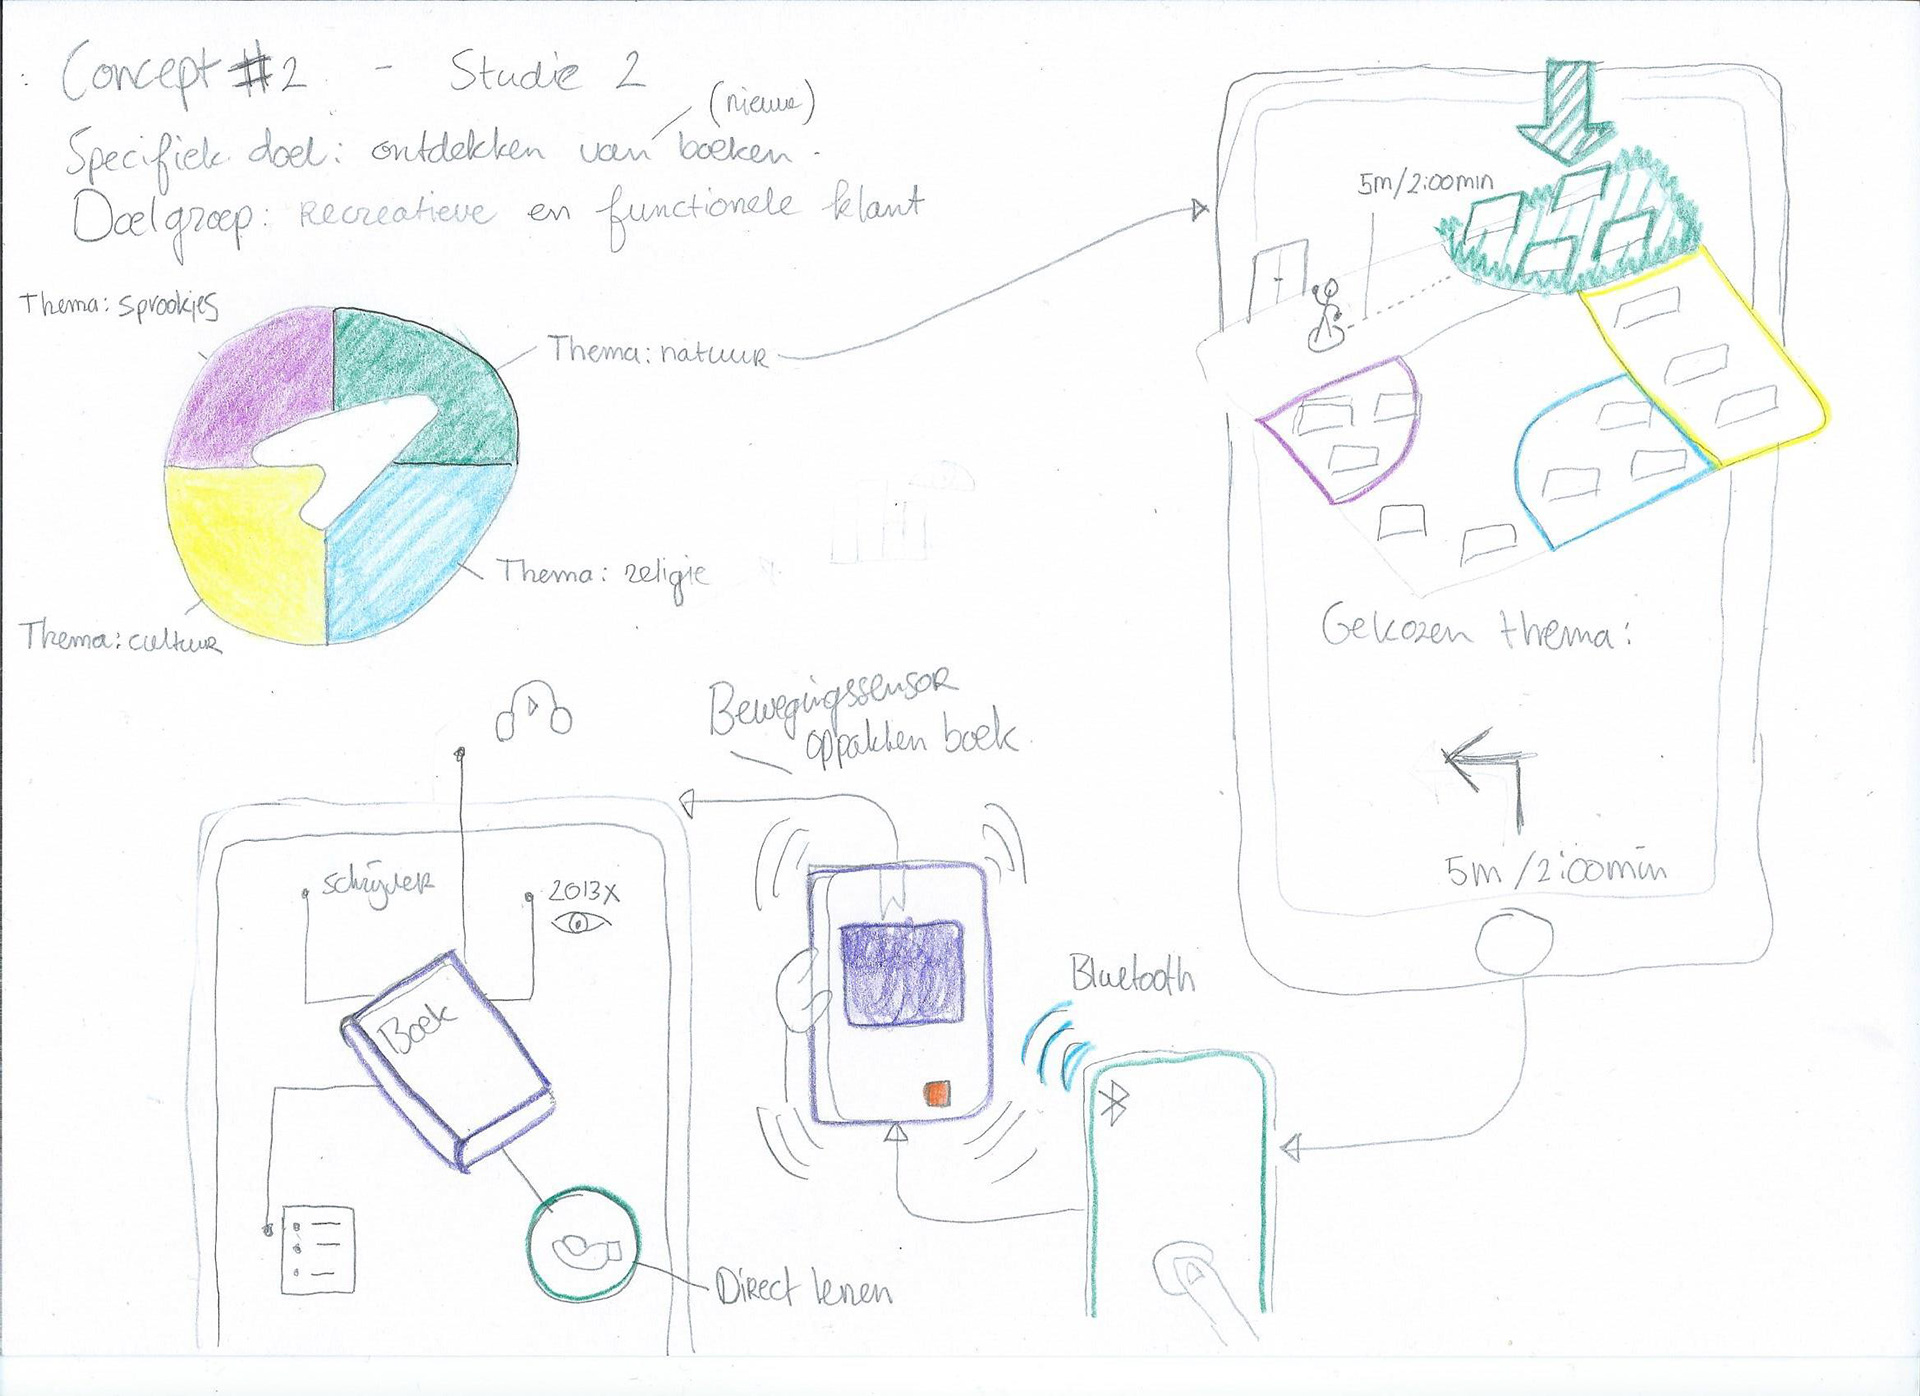 Concept #2 - Studie 2
(nieuwe)
Specifiek doel: ontdekken van boeken.
Doelgroep: Recreatieve en functionele klant
Thema: sprookjes
Thema: natuur
Thema: religie
Thema: cultuur
5m/2:00min
Gekozen thema:
5m/2:00min
Bewegingssensor
oppakken boek
schrijver
2013x
Boek
Direct lenen
Bluetooth